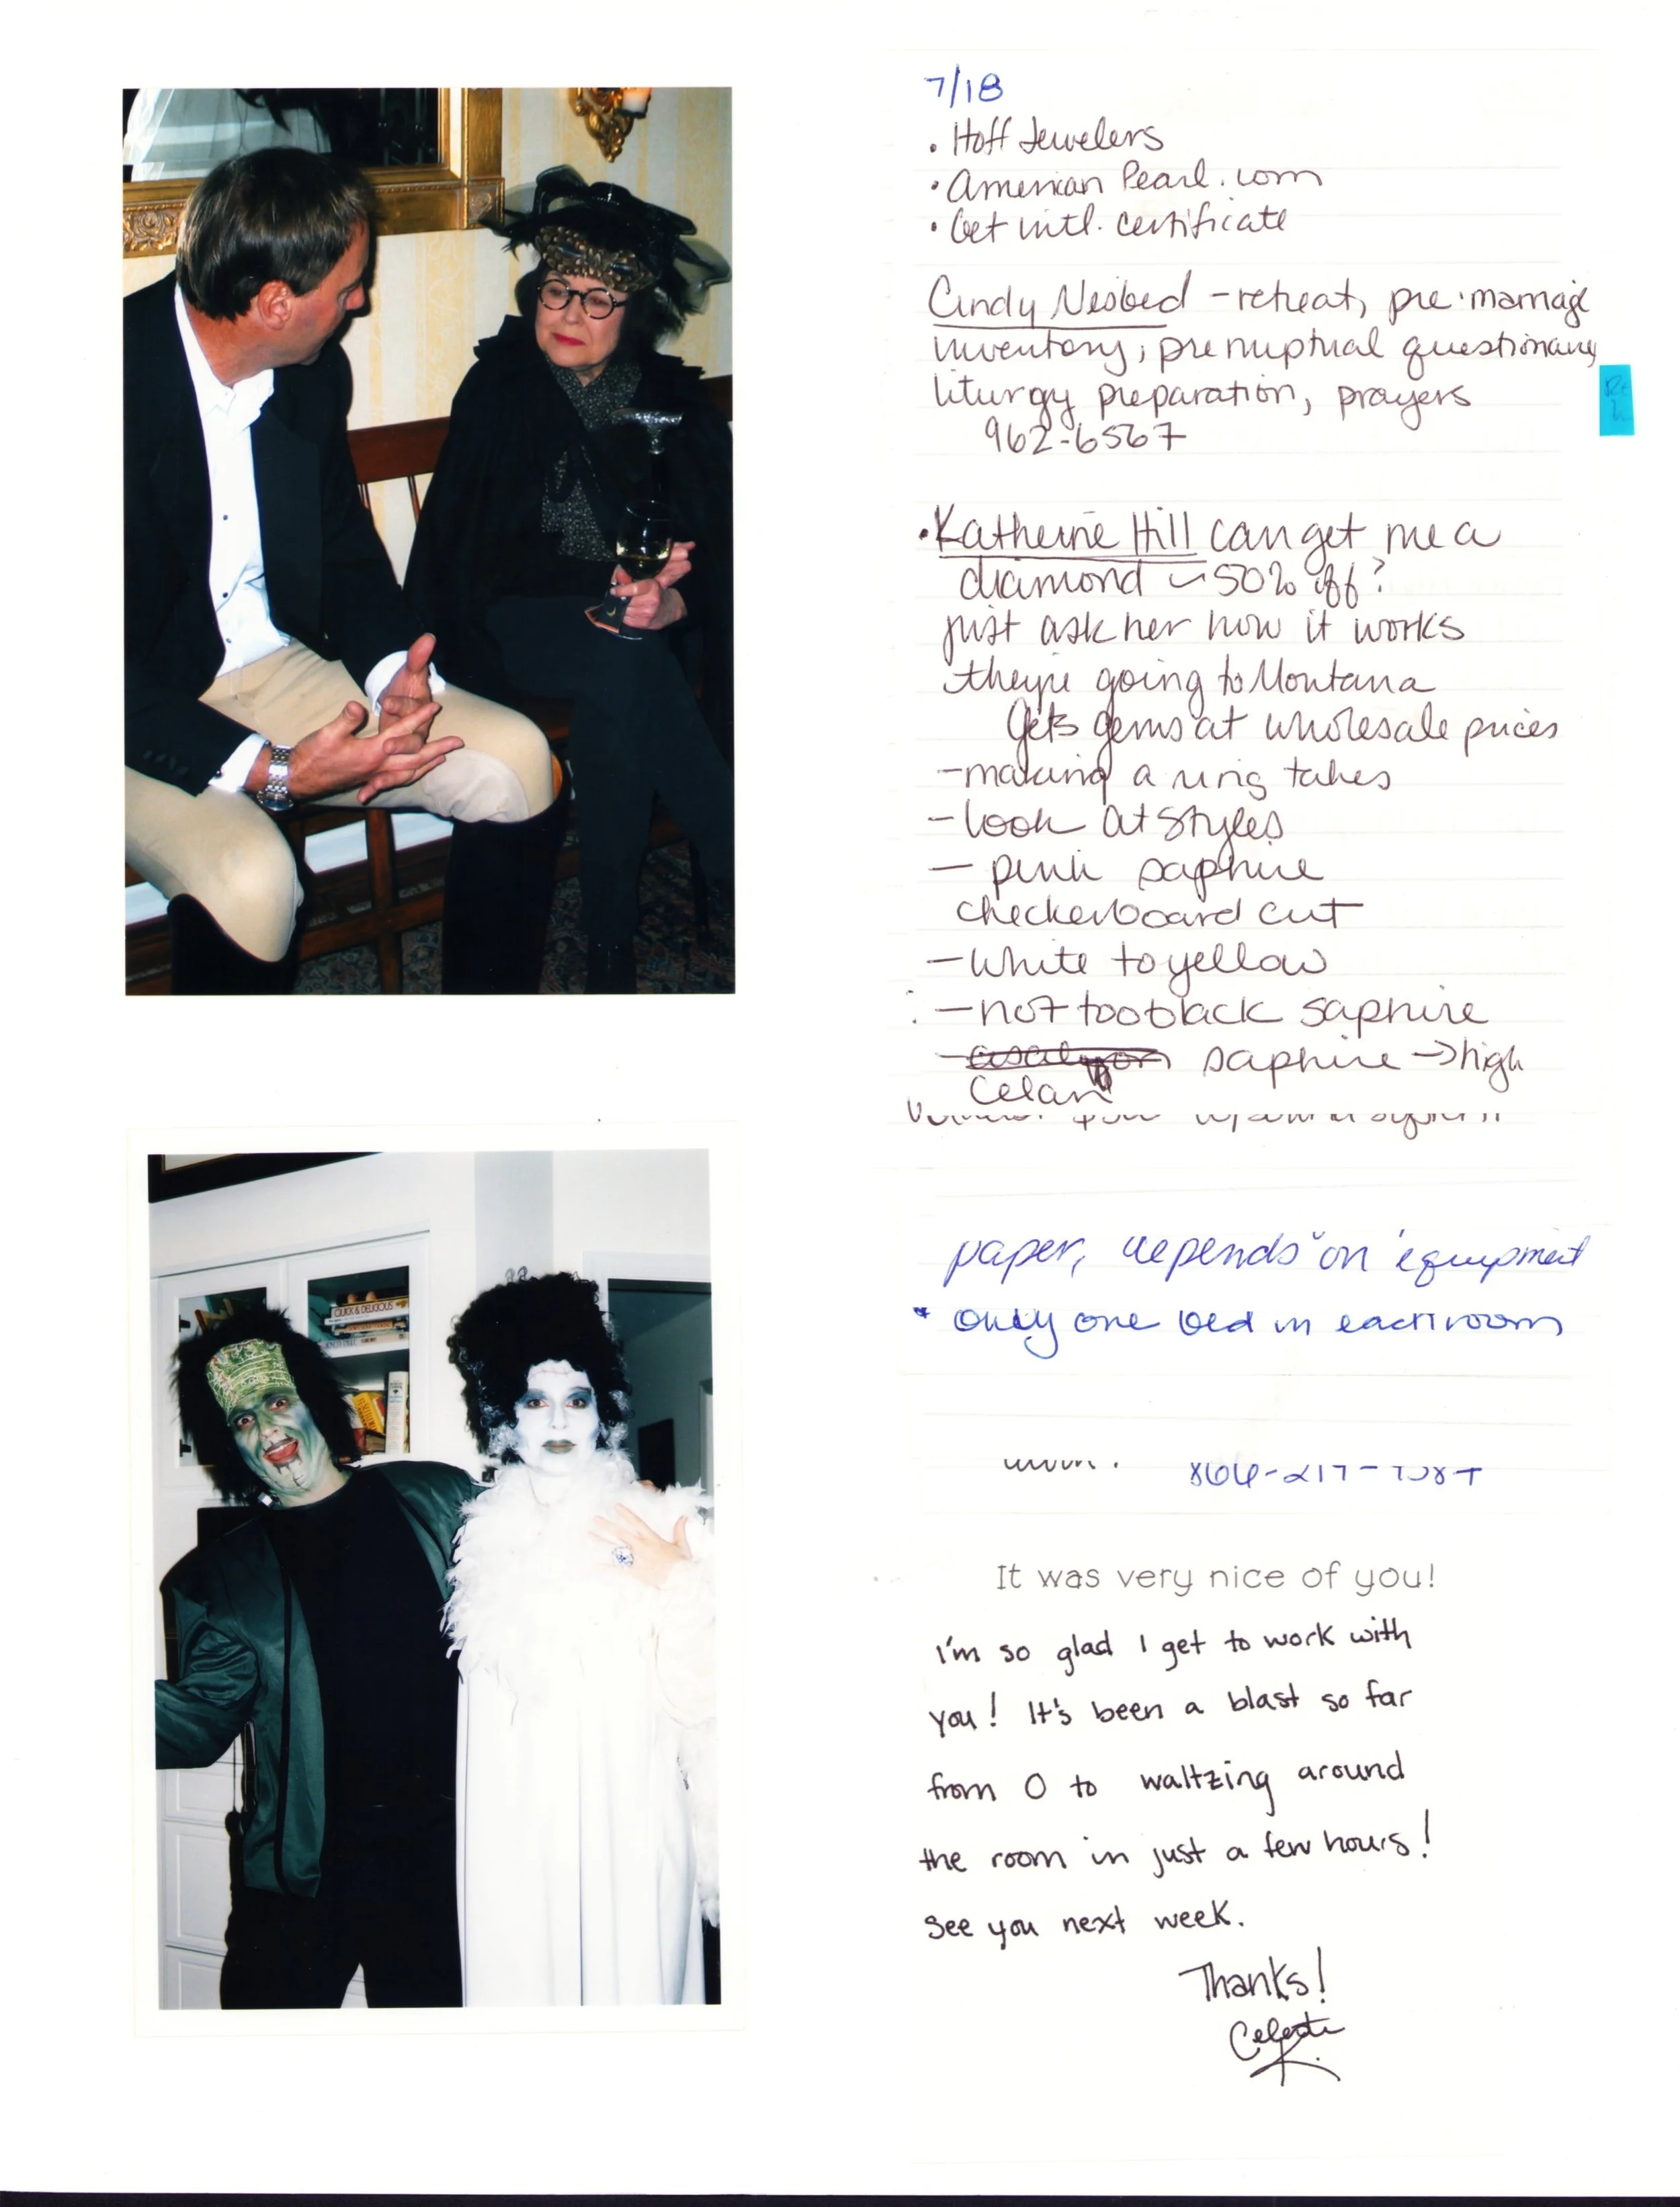 7/18
• Hoff Jewelers
• American Pearl.com
• Get intl. certificate
Cindy Nesbed - retreat, pre-marriage
inventory, prenuptual questionaire
liturgy preparation, prayers
962-6567
• Katherine Hill can get me a
diamond ~50% off?
just ask her how it works
they're going to Montana
gets gems at wholesale prices
- making a ring takes
- look at styles
- pink saphire
checkerboard cut
- white to yellow
- not too black saphire
- saphire → high
QUICK & DELICIOUS
paper, depends on equipment
* only one bed in each room
It was very nice of you!
I'm so glad I get to work with
you! It's been a blast so far
from 0 to waltzing around
the room in just a few hours!
See you next week.
Thanks!
Celeste
K.